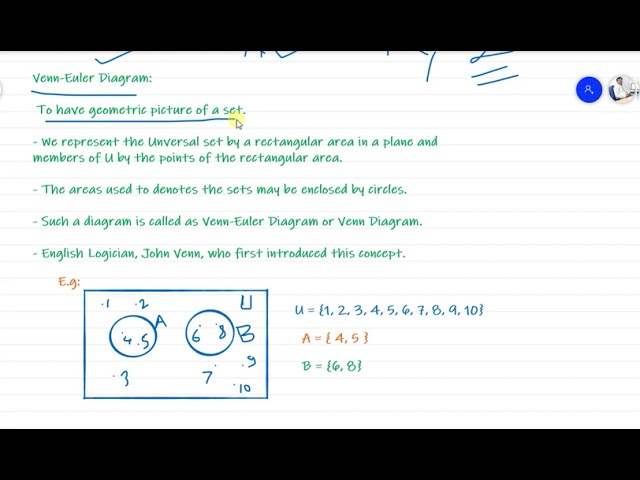 Venn-Euler Diagram:
To have geometric picture of a set.
- We represent the Unversal set by a rectangular area in a plane and
members of U by the points of the rectangular area.
- The areas used to denotes the sets may be enclosed by circles.
- Such a diagram is called as Venn-Euler Diagram or Venn Diagram.
- English Logician, John Venn, who first introduced this concept.
E.g:
.1 .2 U
A B
.4 .5 6 8
.3 7 .9
.10
U = {1, 2, 3, 4, 5, 6, 7, 8, 9, 10}
A = { 4, 5 }
B = {6, 8}